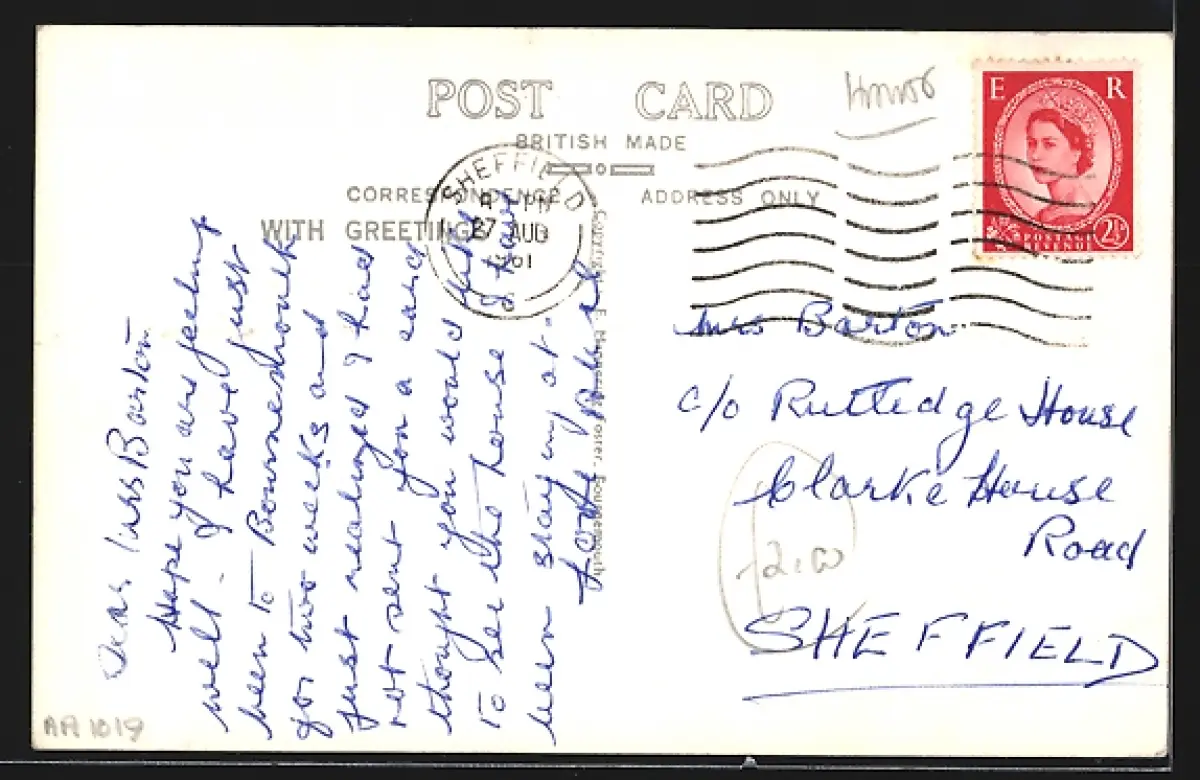 POST CARD
BRITISH MADE
CORRESPONDENCE
ADDRESS ONLY
WITH GREETINGS
SHEFFIELD
PM
27 AUG
1961
E R
POSTAGE
REVENUE
2½D
Dear Mrs Barton
Hope you are feeling
well. I have just
been to Bournemouth
for two weeks and
just realized I had
not sent you a card
thought you would like
to see the house I have
been staying at.
Love
Mrs Barton
c/o Rutledge House
Clarke House
Road
SHEFFIELD
Foster, Bournemouth
£2.00
AA1019